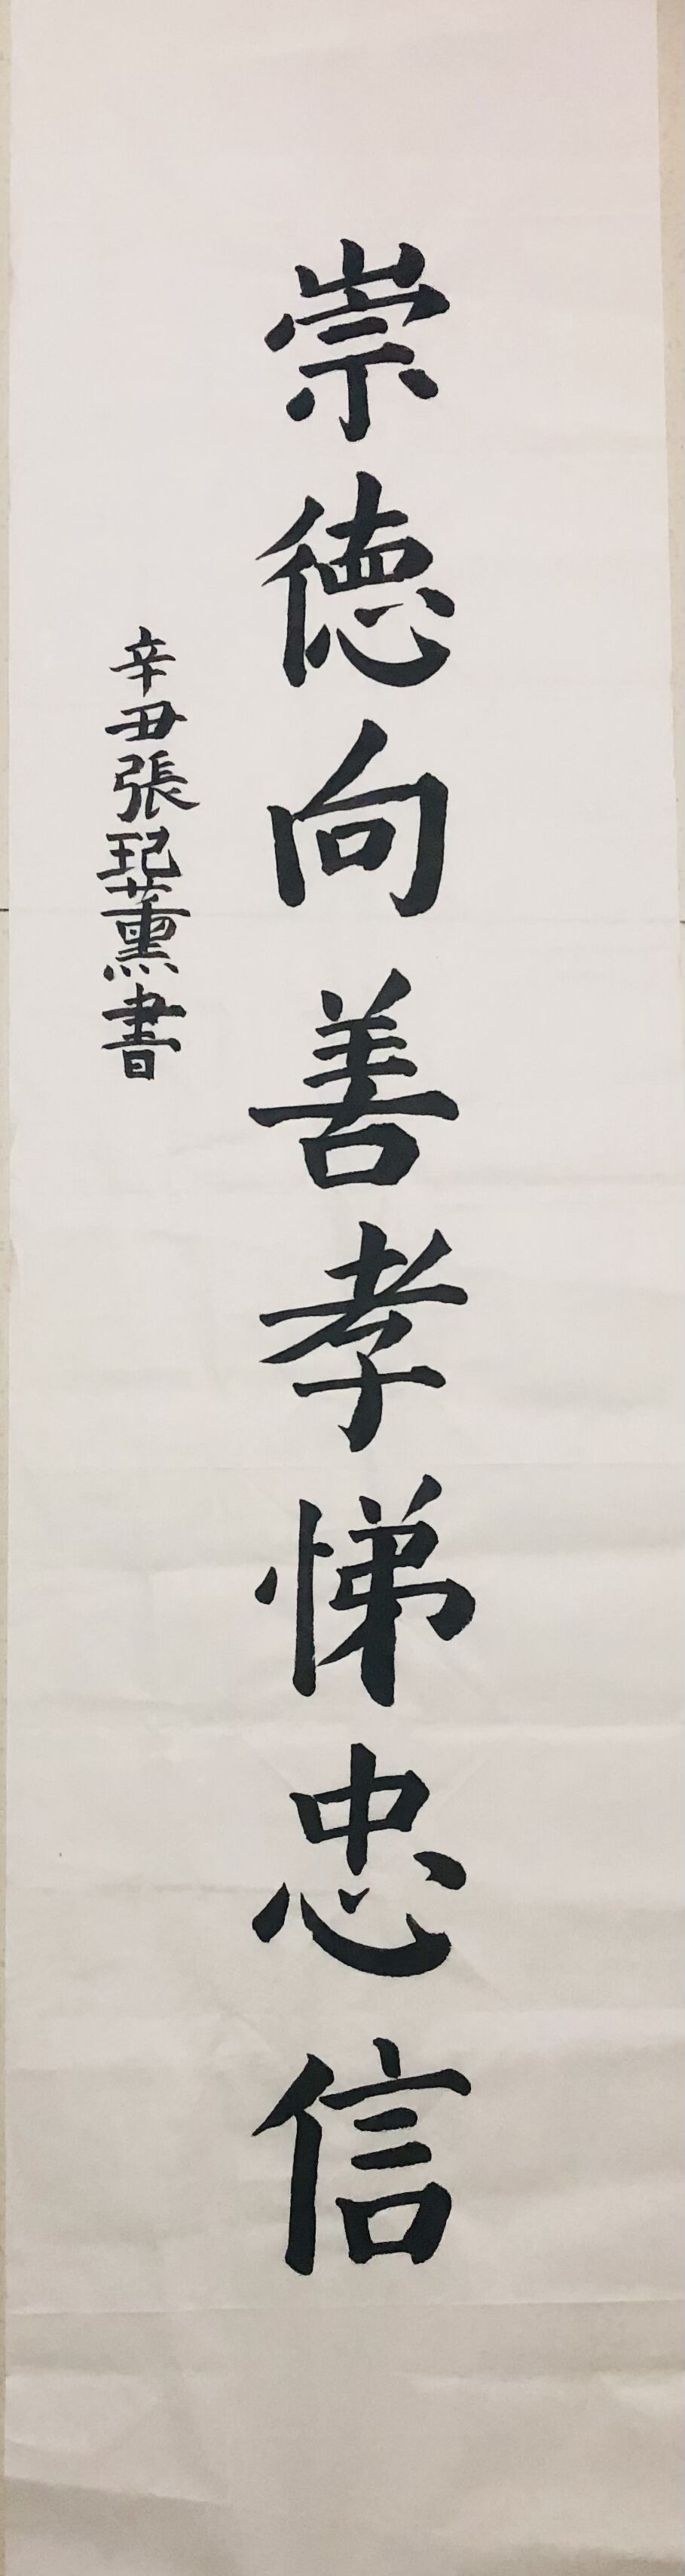 崇德向善孝悌忠信
辛丑張玘薰書